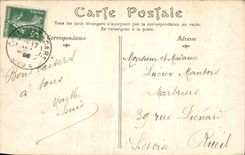 Carte Postale
Tous les pays étrangers n'acceptent pas la correspondance au recto.
Se renseigner à la poste.
Correspondance
Adresse
Bons baisers
à tous
Marthe
Louis
Monsieur et Madame
Lucien
Marbriers
29 rue
Rueil